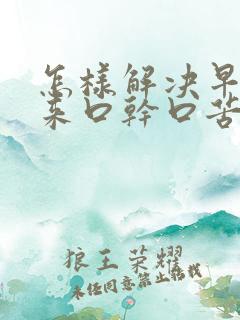 怎樣解决早
来口幹口苦
狼王荣耀
未经同意禁止转载